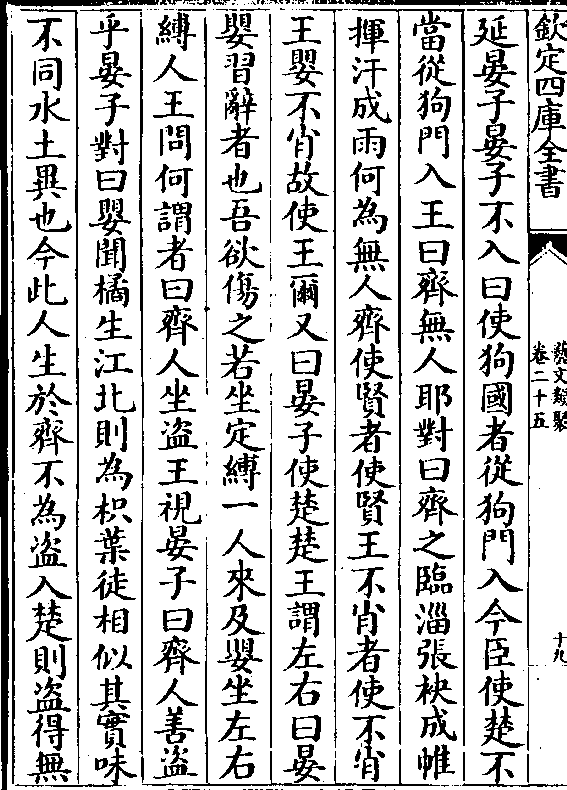 欽定四庫全書
藝文類聚
卷二十五
十九
延晏子晏子不入曰使狗國者從狗門入今臣使楚不
當從狗門入王曰齊無人耶對曰齊之臨淄張袂成帷
揮汗成雨何為無人齊使賢者使賢王不肖者使不肖
王嬰不肖故使王爾又曰晏子使楚楚王謂左右曰晏
嬰習辭者也吾欲傷之若坐定縛一人來及嬰坐左右
縛人王問何謂者曰齊人坐盜王視晏子曰齊人善盜
乎晏子對曰嬰聞橘生江北則為枳葉徒相似其實味
不同水土異也今此人生於齊不為盜入楚則盜得無